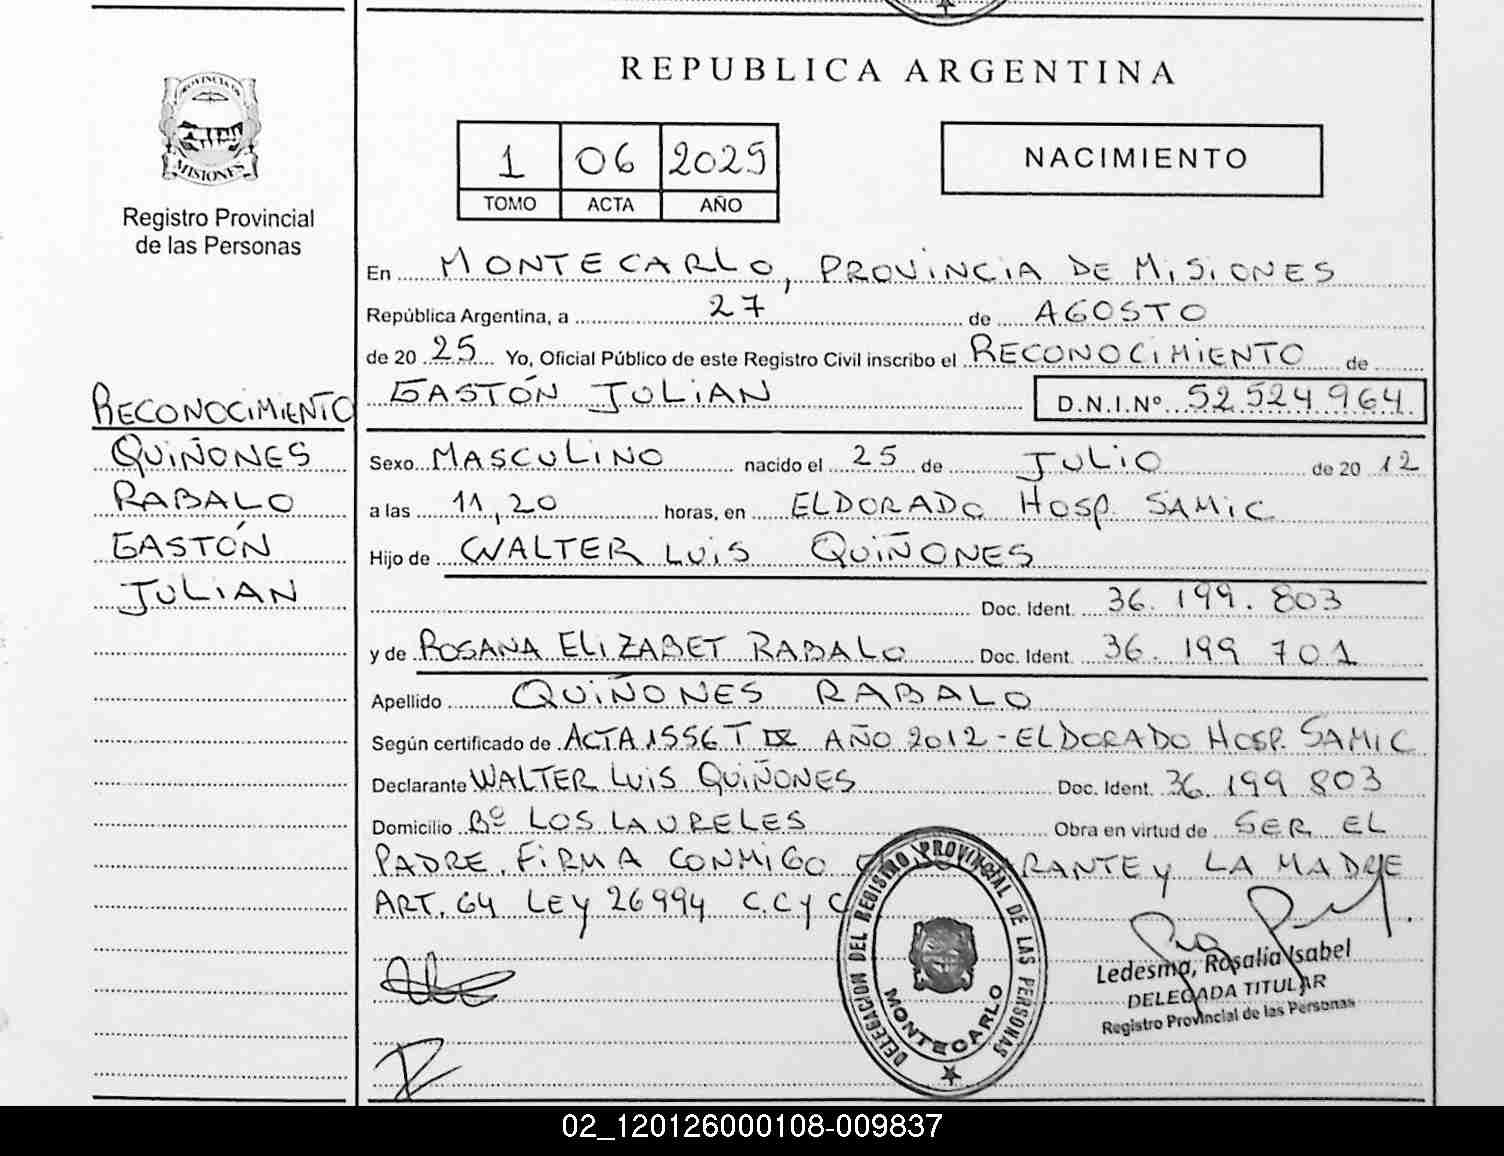 REPUBLICA ARGENTINA
PROVINCIA DE
MISIONES
Registro Provincial
de las Personas
1 06 2025
TOMO ACTA AÑO
NACIMIENTO
En MONTECARLO, PROVINCIA DE MISIONES
República Argentina, a 27 de AGOSTO
de 20 25 Yo, Oficial Público de este Registro Civil inscribo el RECONOCIMIENTO de
GASTÓN JULIAN D.N.I.Nº 52524964
RECONOCIMIENTO
QUIÑONES
RABALO
GASTÓN
JULIAN
Sexo MASCULINO nacido el 25 de JULIO de 20 12
a las 11,20 horas, en ELDORADO HOSP. SAMIC
Hijo de WALTER LUIS QUIÑONES
Doc. Ident. 36.199.803
y de ROSANA ELIZABET RABALO Doc. Ident. 36.199 701
Apellido QUIÑONES RABALO
Según certificado de ACTA 1556 T IX AÑO 2012 - ELDORADO HOSP. SAMIC
Declarante WALTER LUIS QUIÑONES Doc. Ident. 36.199 803
Domicilio Bº LOS LAURELES Obra en virtud de SER EL
PADRE. FIRMA CONMIGO RANTE y LA MADRE
ART. 64 LEY 26994 C.C y C
DELEGACION DEL REGISTRO PROVINCIAL DE LAS PERSONAS
MONTECARLO
Ledesma, Rosalia Isabel
DELEGADA TITULAR
Registro Provincial de las Personas
02_120126000108-009837